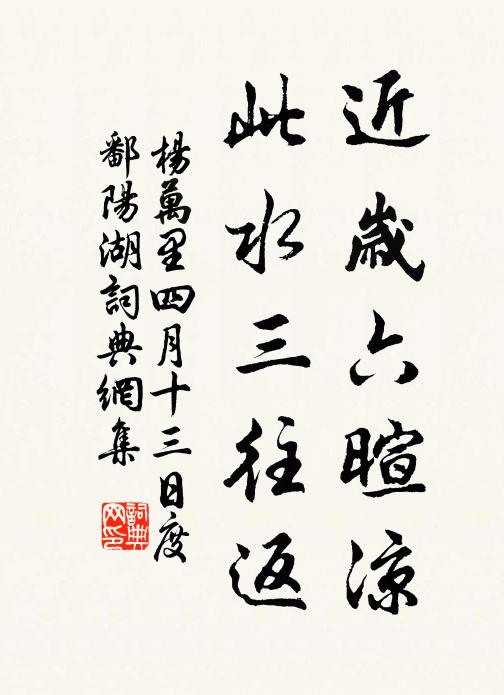 近歲六暄涼
此水三往返
楊萬里四月十三日度
鄱陽湖詞典網集
詞典網印